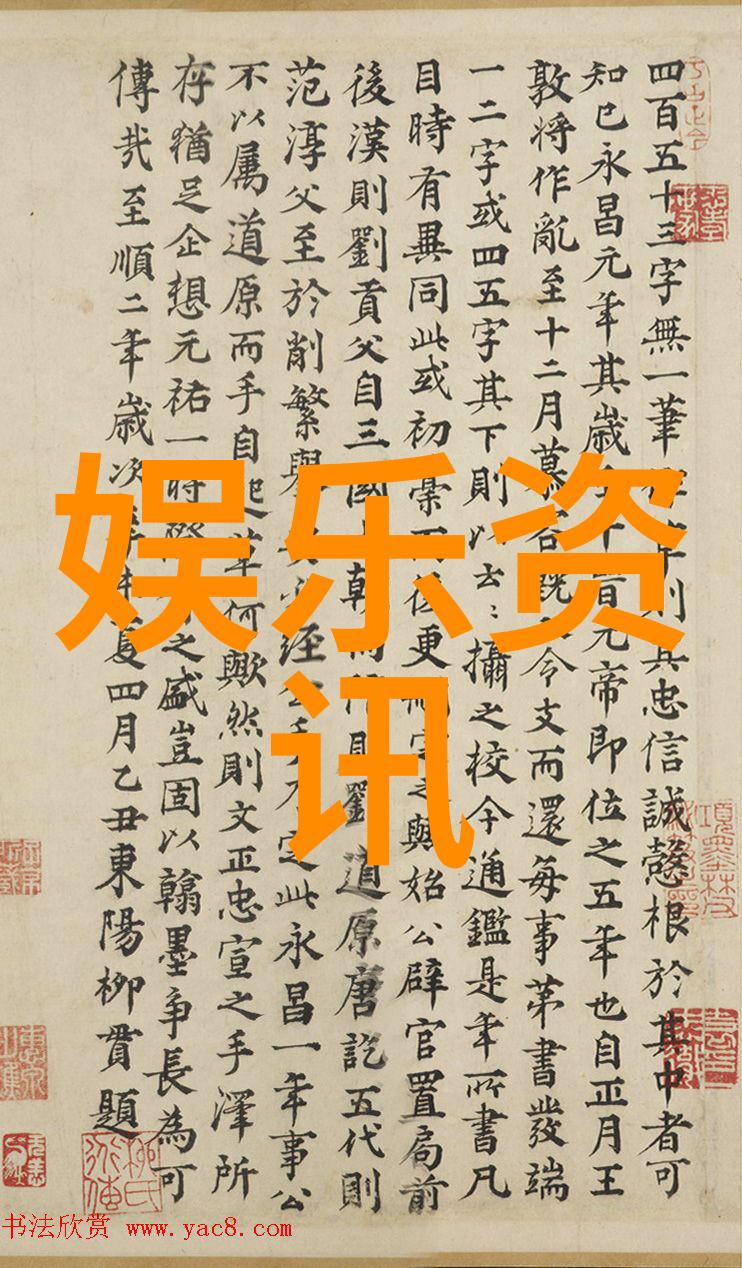 四百五十三字無一筆
忠信誠愨根於其中者可
知已永昌元年其歲
元帝即位之五年也自正月王
敦將作亂至十二月慕容
令支而還每事第書發端
一二字或四五字其下則以云云攝之校今通鑑是年所書凡
目時有異同此或初稾而
更
與始公辟官置局前
後漢則劉貢父自三國
則劉道原唐訖五代則
范淳父至於削繁舉
經公手乃定此永昌一年事公
不以屬道原而手自起草何歟然則文正忠宣之手澤所
存猶足企想元祐一時
之盛豈固以翰墨爭長為可
傳哉至順二年歲次辛未夏四月乙丑東陽柳貫題
柳氏
娱乐资
讯
书法欣赏 www.yac8.com